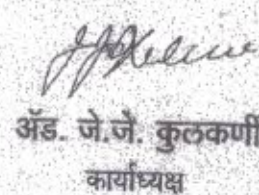 ॲड. जे.जे. कुलकर्णी
कार्याध्यक्ष